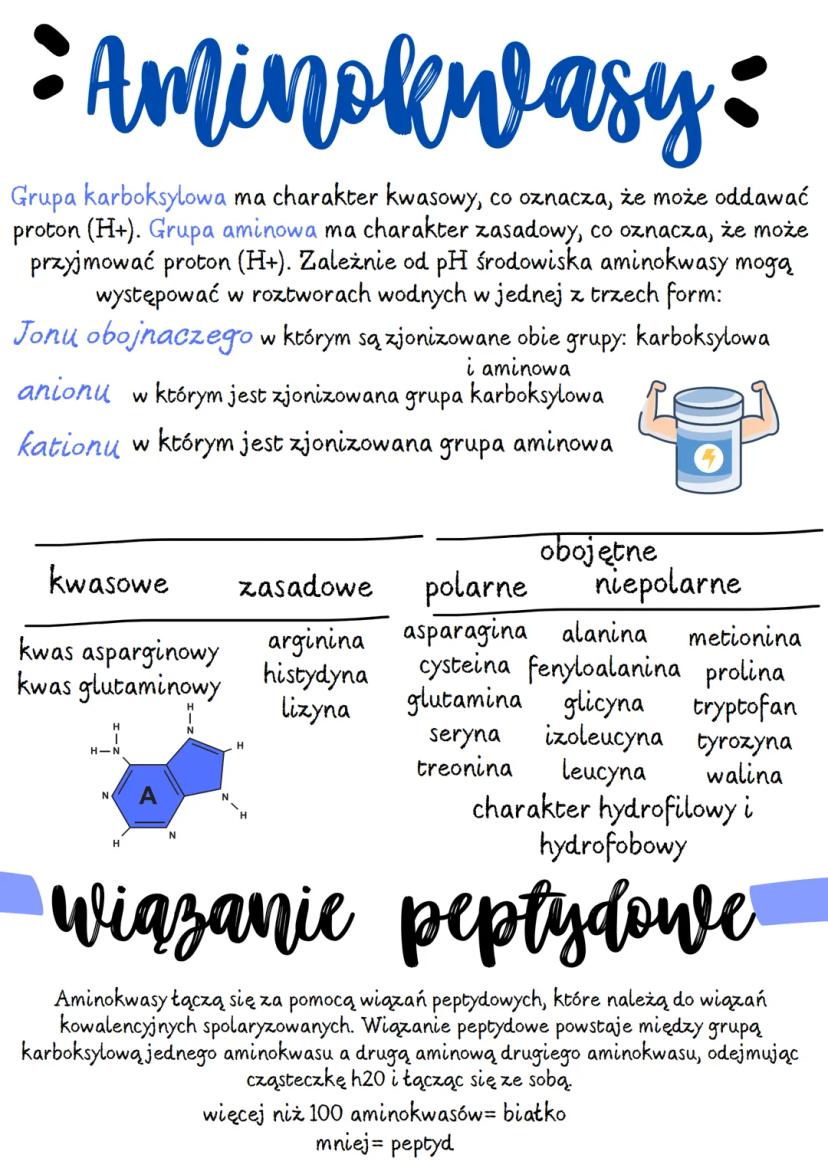 Aminokwasy
Grupa karboksylowa ma charakter kwasowy, co oznacza, że może oddawać
proton (H+). Grupa aminowa ma charakter zasadowy, co oznacza, że może
przyjmować proton (H+). Zależnie od pH środowiska aminokwasy mogą
występować w roztworach wodnych w jednej z trzech form:
Jonu obojnaczego w którym są zjonizowane obie grupy: karboksylowa
i aminowa
anionu w którym jest zjonizowana grupa karboksylowa
kationu w którym jest zjonizowana grupa aminowa
obojętne
kwasowe zasadowe polarne niepolarne
kwas asparginowy
kwas glutaminowy
arginina
histydyna
lizyna
asparagina
cysteina
glutamina
seryna
treonina
alanina
fenyloalanina
glicyna
izoleucyna
leucyna
metionina
prolina
tryptofan
tyrozyna
walina
charakter hydrofilowy i
hydrofobowy
H
H
N
H
N
H
N
A
N
H
N
H
wiązanie peptydowe
Aminokwasy łączą się za pomocą wiązań peptydowych, które należą do wiązań
kowalencyjnych spolaryzowanych. Wiązanie peptydowe powstaje między grupą
karboksylową jednego aminokwasu a drugą aminową drugiego aminokwasu, odejmując
cząsteczkę h20 i łącząc się ze sobą.
więcej niż 100 aminokwasów= białko
mniej= peptyd